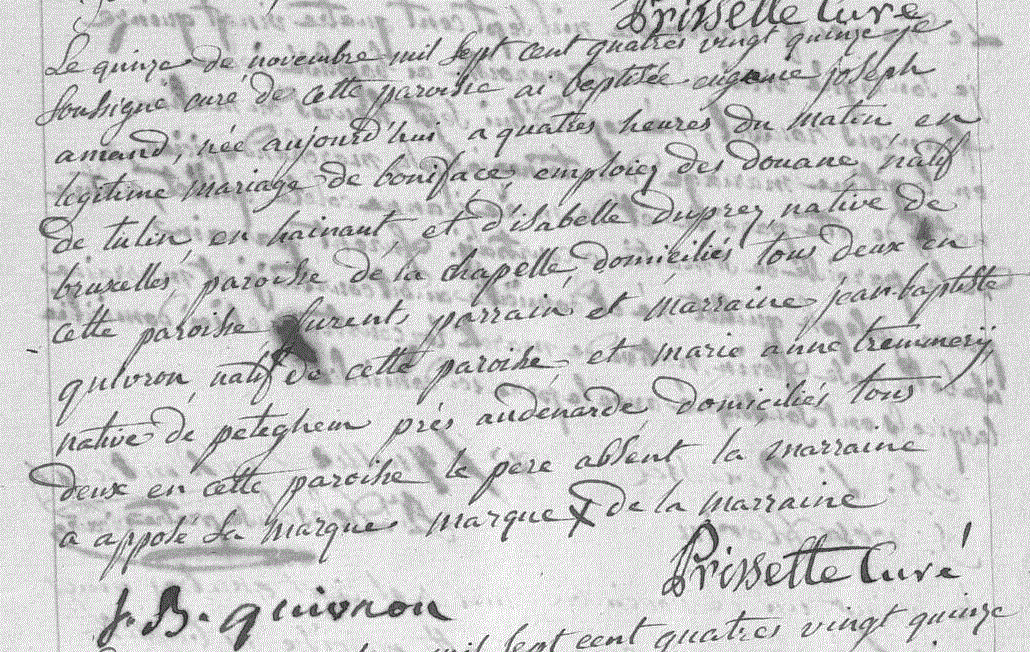 Prissette Curé
Le quinze de novembre mil sept cent quatres vingt quinze je
soussigné curé de cette paroisse ai baptisée eugenie joseph
amand, née aujourd'hui a quatres heures du matin en
legitime mariage de boniface emploiez des douane, natif
de tulin en hainaut, et d'isabelle duprez native de
bruxelles paroisse de la chapelle domiciliés tous deux en
cette paroisse furent parrain et marraine jean-baptiste
quivron natif de cette paroisse et marie anne tremmerij
native de peteghem prés audenarde domiciliés tous
deux en cette paroisse le pere absent la marraine
a apposé sa marque marque X de la marraine
Prissette Curé
J. B. quivron
mil sept cent quatres vingt quinze